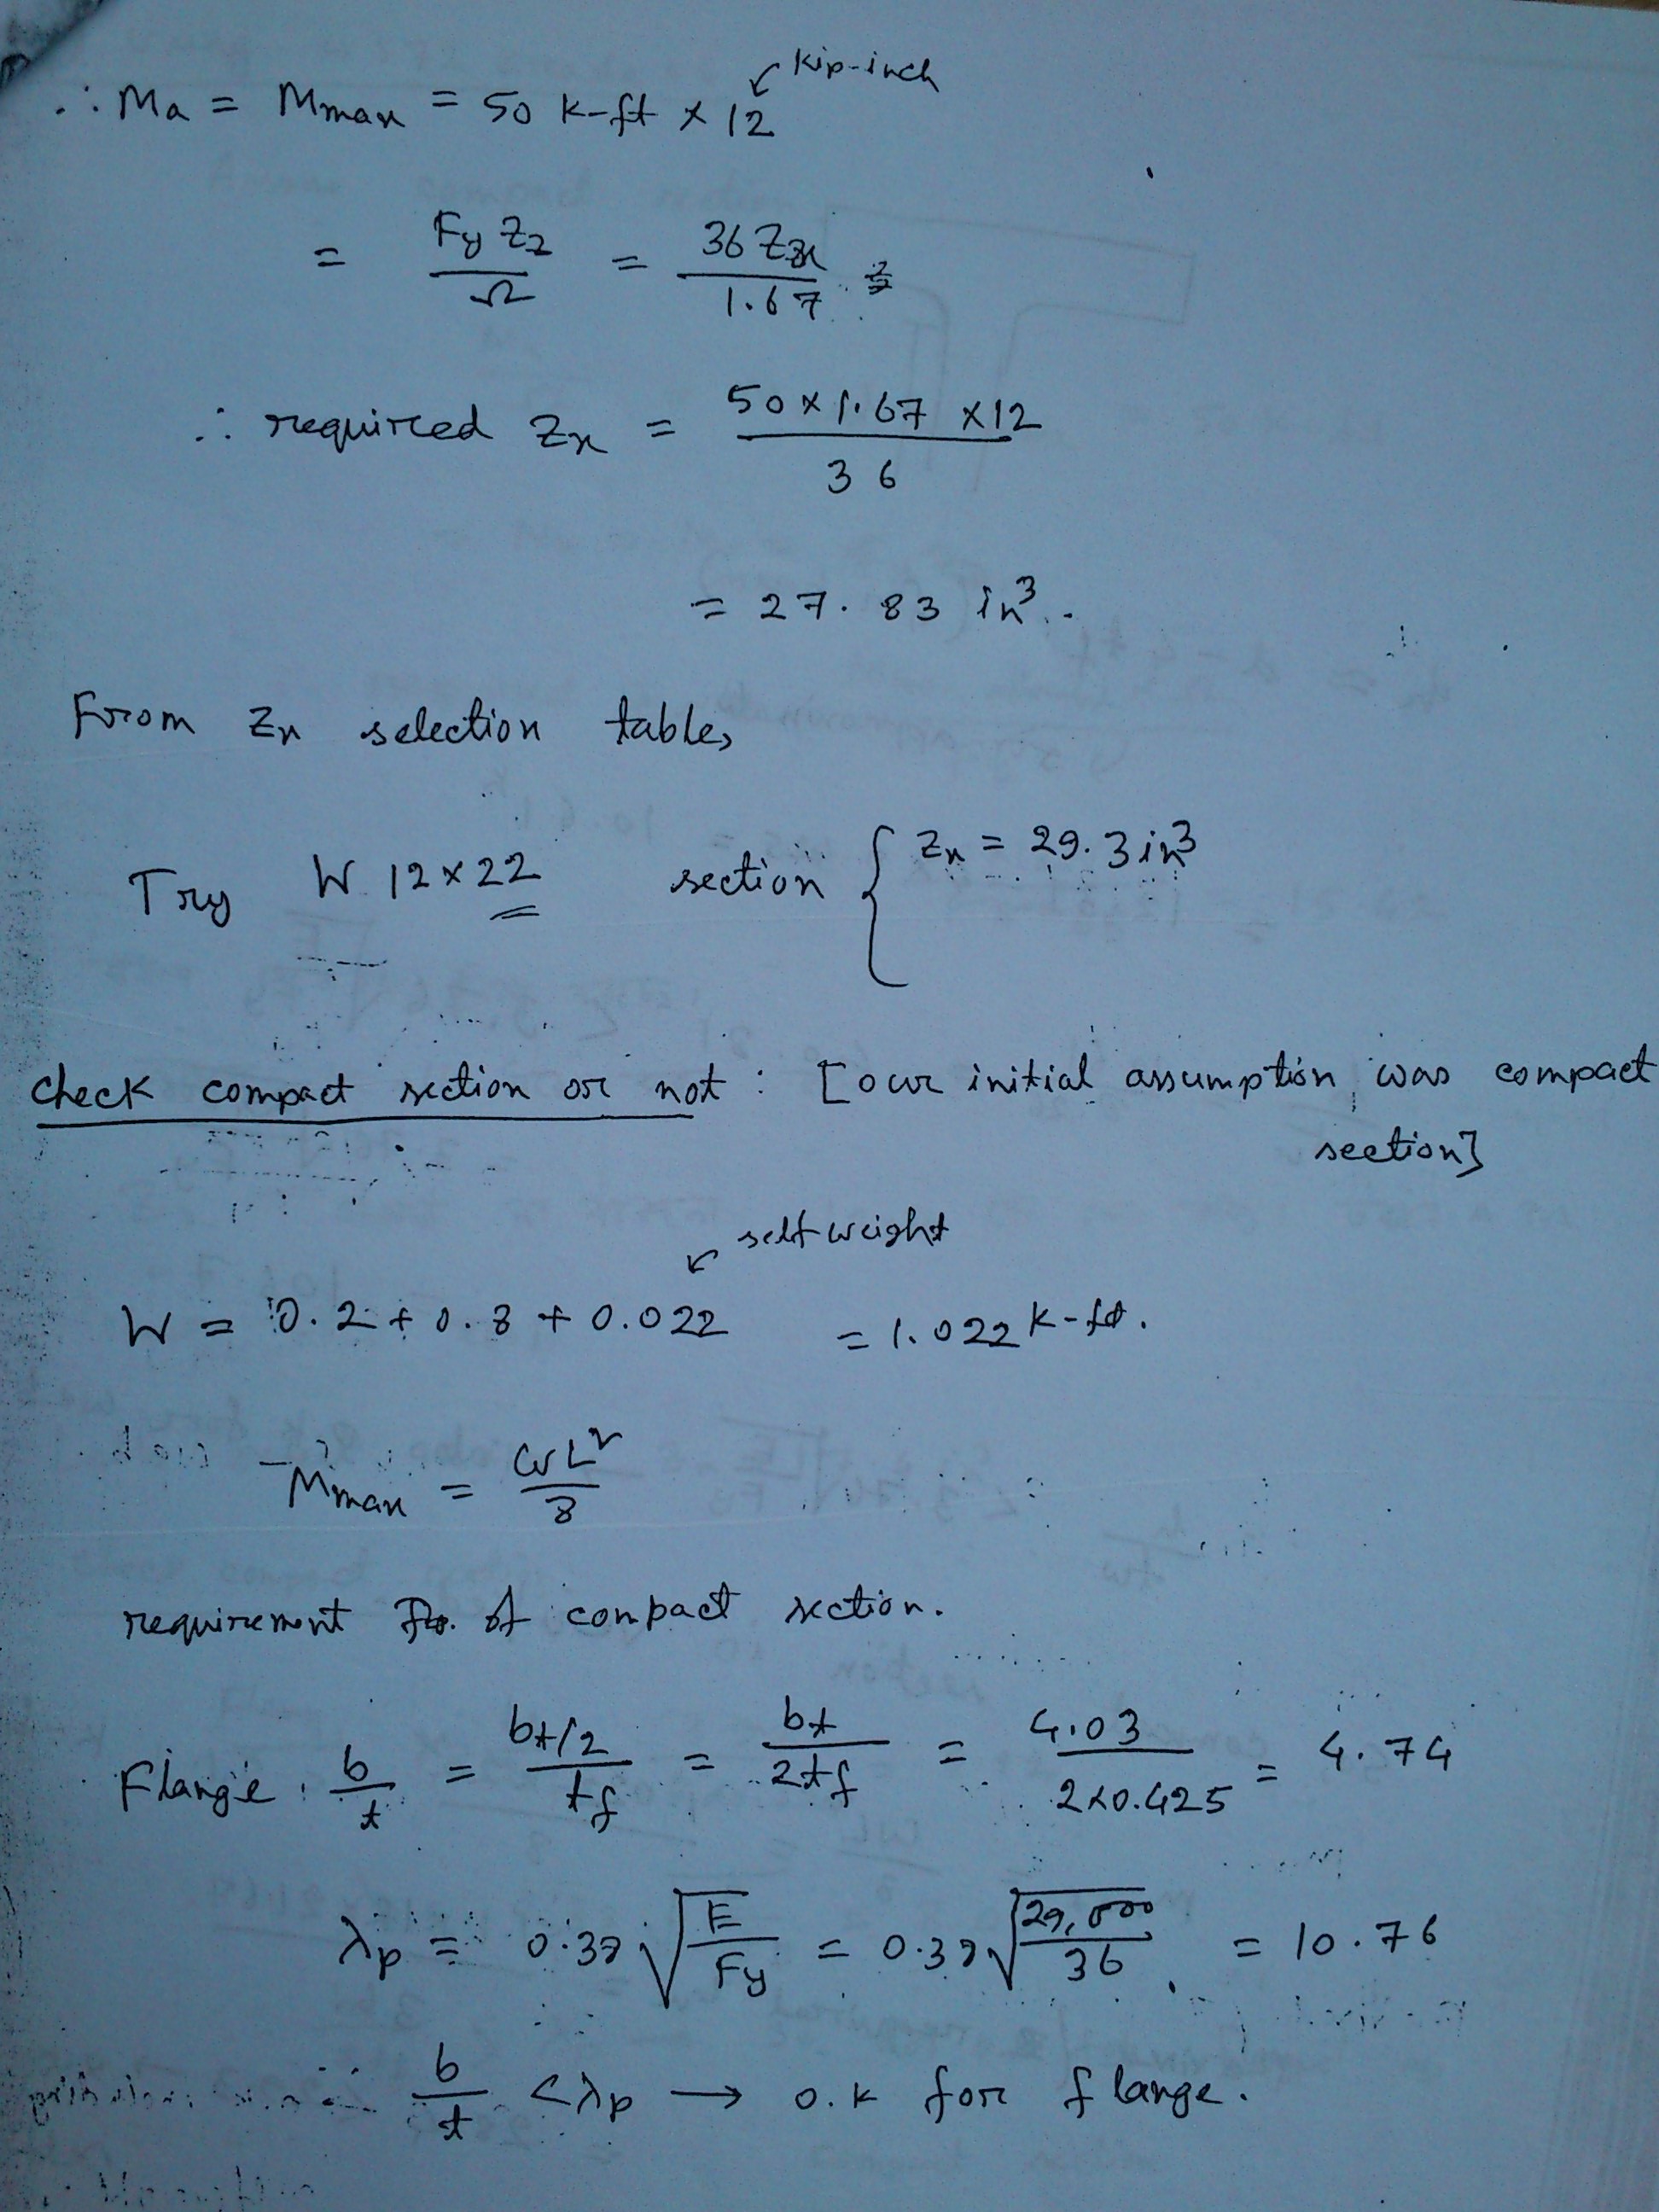 kip-inch
∴ Ma = Mmax = 50 k-ft × 12
= Fy Zz / Ω = 36 Zx / 1.67
∴ required Zx = 50×1.67×12 / 36
= 27.83 in³.
From Zx selection table,
Try W 12×22 section { Zx = 29.3 in³
check compact section or not : [our initial assumption was compact
section]
self weight
W = 0.2 + 0.8 + 0.022 = 1.022 k-ft.
Mmax = WL² / 8
requirement of compact section.
Flange : b/t = bf/2 / tf = bf / 2tf = 4.03 / 2×0.425 = 4.74
λp = 0.38 √(E / Fy) = 0.38 √(29,000 / 36) = 10.76
∴ b/t < λp → o.k for flange.